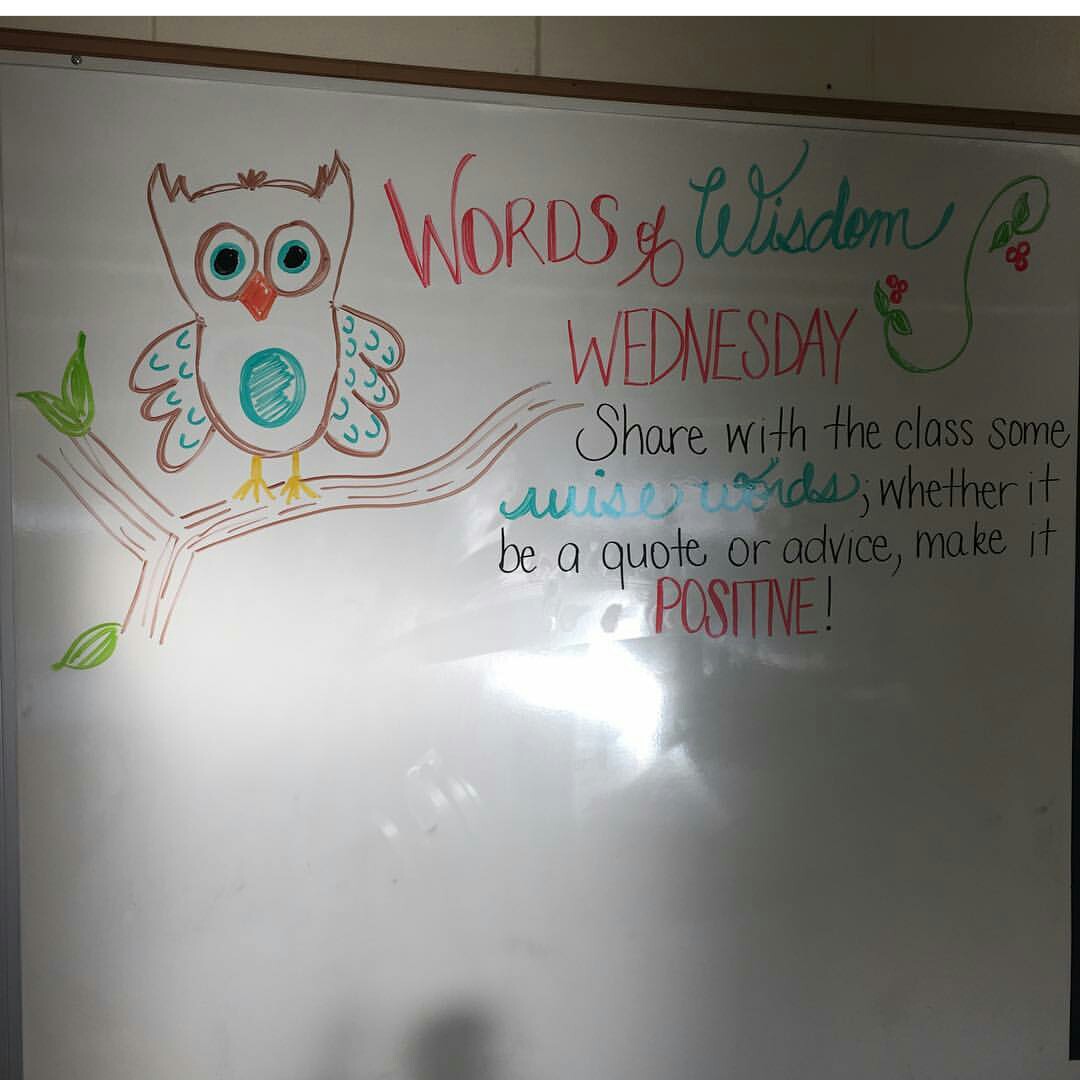 WORDS of Wisdom
WEDNESDAY
Share with the class some
wise words; whether it
be a quote or advice, make it
POSITIVE!